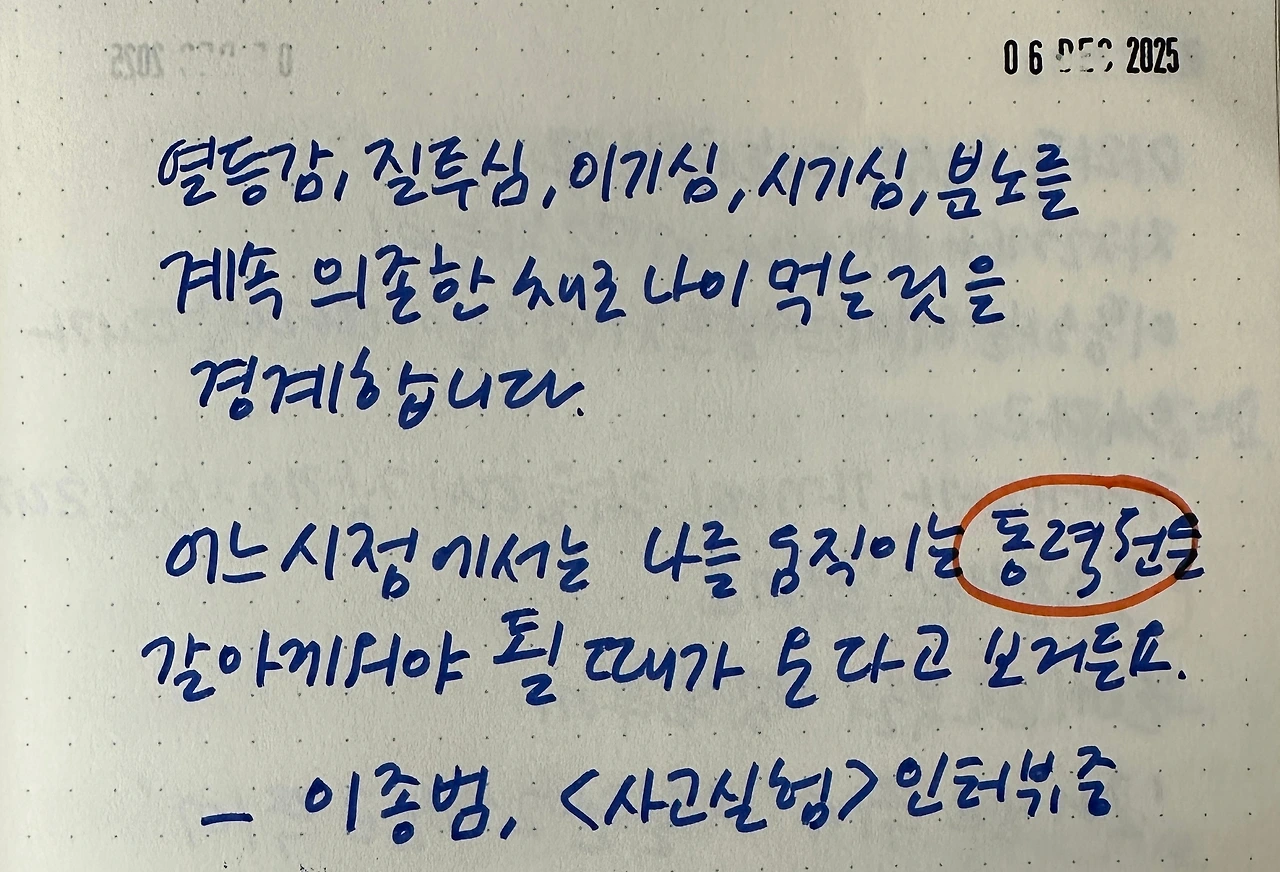 06 DEC 2025
열등감, 질투심, 이기심, 시기심, 분노를
계속 의존한 채로 나이 먹는 것을
경계합니다.
어느 시점에서는 나를 움직이는 동력원을
갈아끼워야 될 때가 온다고 보거든요.
— 이종범, <사고실험> 인터뷰 중